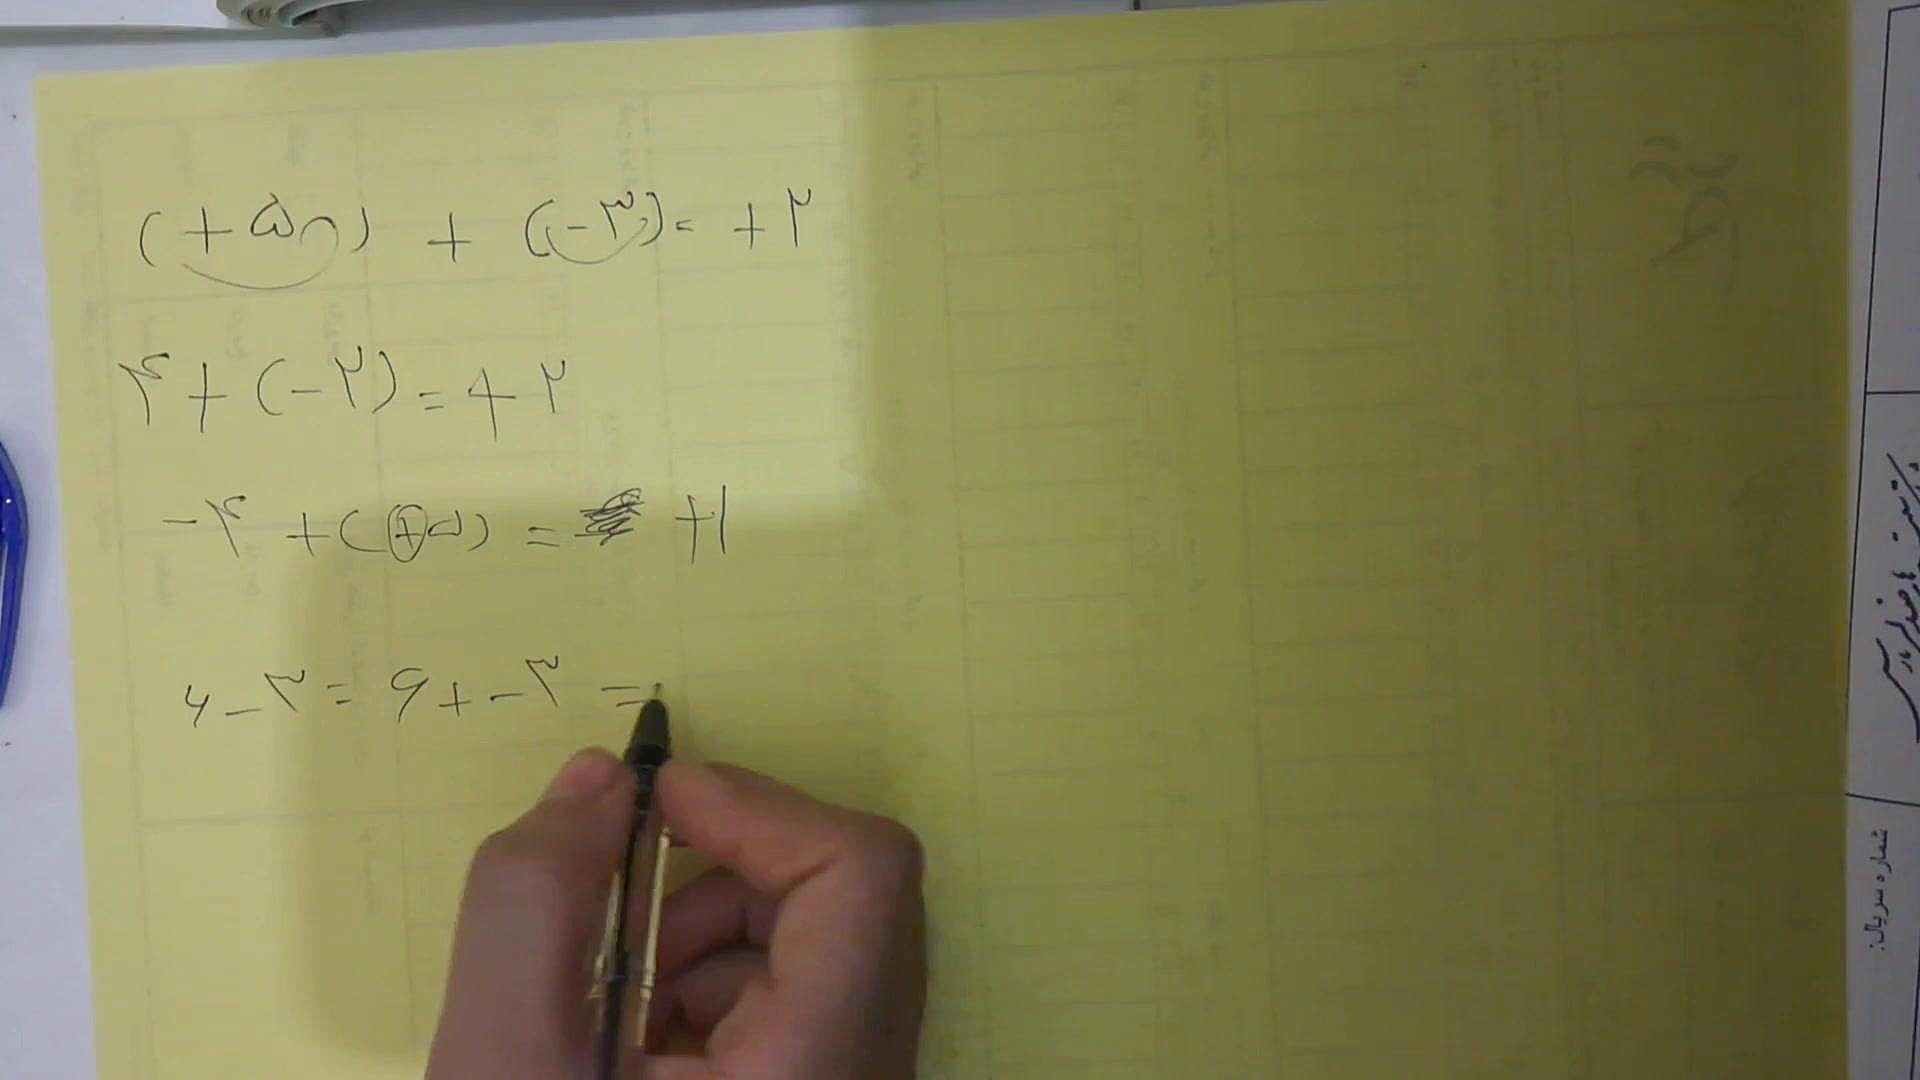 (+۵) + (-۳) = +۲
۴ + (-۲) = +۲
-۴ + (+۵) = +۱
۶-۳ = ۶+-۳ =
شماره سریال: